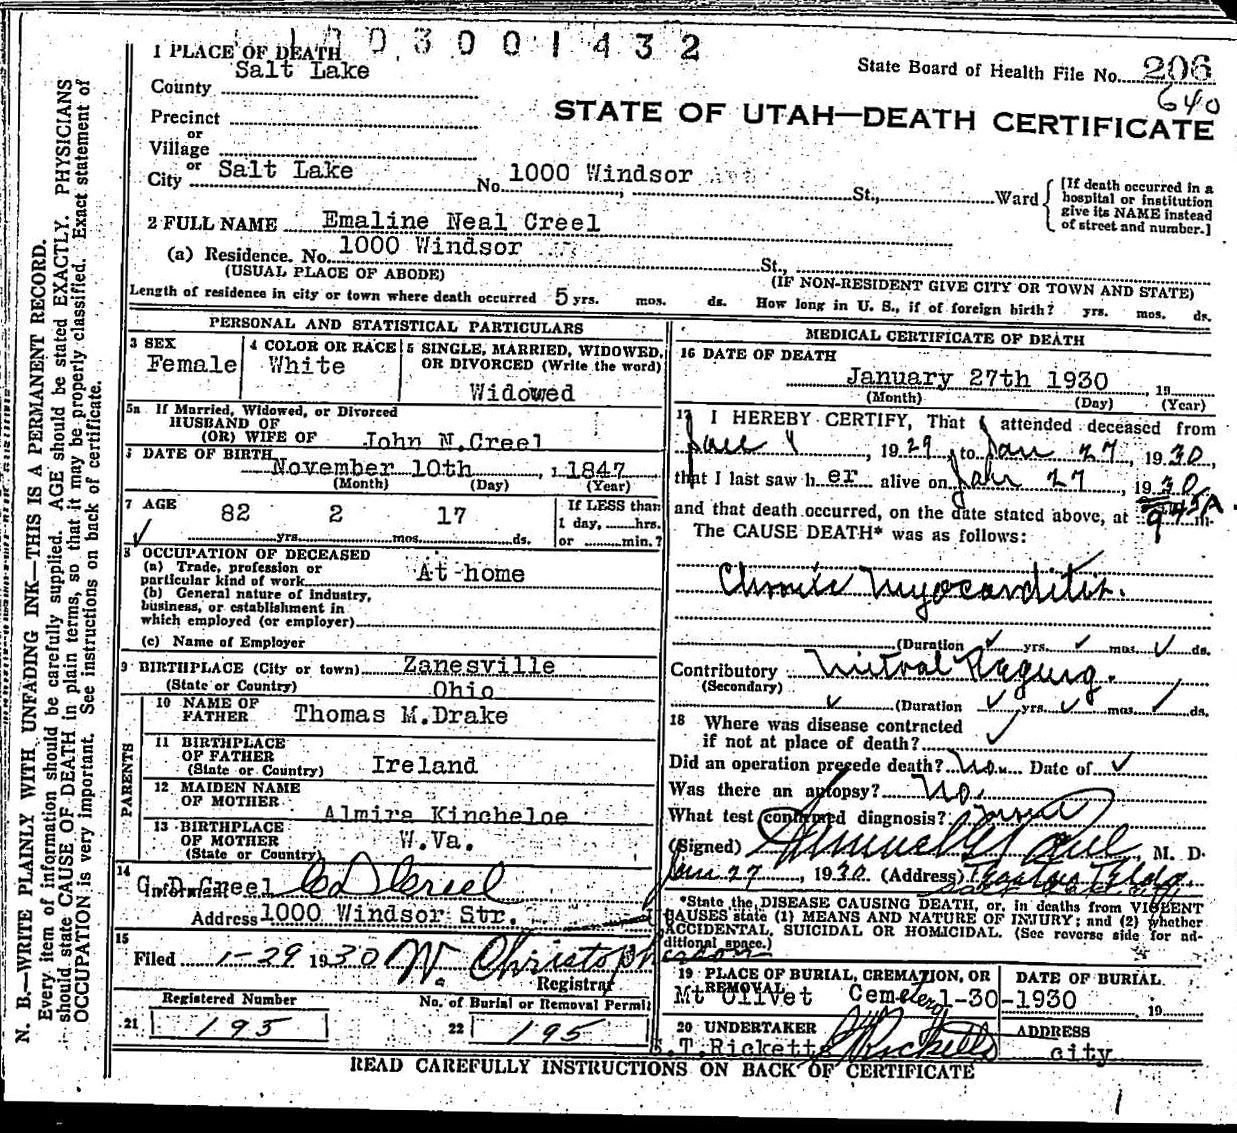 1003001432
State Board of Health File No. 206
640
1 PLACE OF DEATH
County Salt Lake
STATE OF UTAH—DEATH CERTIFICATE
Precinct
or
Village
or
City Salt Lake No. 1000 Windsor Ave St., Ward
[If death occurred in a
hospital or institution
give its NAME instead
of street and number.]
2 FULL NAME Emaline Neal Creel
(a) Residence. No. 1000 Windsor St.,
(USUAL PLACE OF ABODE) (IF NON-RESIDENT GIVE CITY OR TOWN AND STATE)
Length of residence in city or town where death occurred 5 yrs. mos. ds. How long in U. S., if of foreign birth? yrs. mos. ds.
PERSONAL AND STATISTICAL PARTICULARS
3 SEX
Female
4 COLOR OR RACE
White
5 SINGLE, MARRIED, WIDOWED,
OR DIVORCED (Write the word)
Widowed
5a If Married, Widowed, or Divorced
HUSBAND OF
(OR) WIFE OF John N.Creel
DATE OF BIRTH
November 10th , 1847
(Month) (Day) (Year)
7 AGE
82 yrs. 2 mos. 17 ds.
If LESS than
1 day, hrs.
or min.?
8 OCCUPATION OF DECEASED
(a) Trade, profession or
particular kind of work At-home
(b) General nature of industry,
business, or establishment in
which employed (or employer)
(c) Name of Employer
9 BIRTHPLACE (City or town) Zanesville
(State or Country) Ohio
PARENTS
10 NAME OF
FATHER Thomas M.Drake
11 BIRTHPLACE
OF FATHER
(State or Country) Ireland
12 MAIDEN NAME
OF MOTHER Almira Kincheloe
13 BIRTHPLACE
OF MOTHER
(State or Country) W.Va.
14
Informant C.D.Creel C D Creel
Address 1000 Windsor Str.
15
Filed 1-29 1930 W. Christopherson
Registrar
Registered Number
21 195
No. of Burial or Removal Permit
22 195
MEDICAL CERTIFICATE OF DEATH
16 DATE OF DEATH
January 27th 1930 , 19
(Month) (Day) (Year)
17 I HEREBY CERTIFY, That I attended deceased from
, 1929, to Jan 27, 1930,
that I last saw her alive on Jan 27, 1930
and that death occurred, on the date stated above, at 945A m.
The CAUSE DEATH* was as follows:
Chronic Myocarditis.
(Duration yrs. mos. ds.
Contributory Mitral Regurg.
(Secondary)
(Duration yrs. mos. ds.
18 Where was disease contracted
if not at place of death?
Did an operation precede death? No. Date of
Was there an autopsy? No.
What test confirmed diagnosis?
(Signed) M. D.
Jan 27, 1930 (Address)
*State the DISEASE CAUSING DEATH, or, in deaths from VIOLENT
CAUSES state (1) MEANS AND NATURE OF INJURY; and (2) whether
ACCIDENTAL, SUICIDAL OR HOMICIDAL. (See reverse side for ad-
ditional space.)
19 PLACE OF BURIAL, CREMATION, OR
REMOVAL
Mt Olivet Cemetery
DATE OF BURIAL
1-30-1930 , 19
20 UNDERTAKER
S.T.Ricketts
ADDRESS
city
READ CAREFULLY INSTRUCTIONS ON BACK OF CERTIFICATE
N. B.—WRITE PLAINLY WITH UNFADING INK—THIS IS A PERMANENT RECORD.
Every item of information should be carefully supplied. AGE should be stated EXACTLY. PHYSICIANS
should state CAUSE OF DEATH in plain terms, so that it may be properly classified. Exact statement of
OCCUPATION is very important. See instructions on back of certificate.